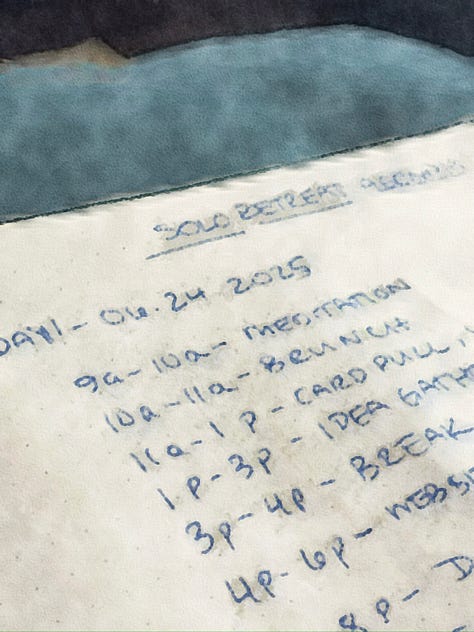 SOLO RETREAT
DAY 1 - 04.24 2025
9a-10a- MEDITATION
10a-11a- BRUNCH
11a-1P- CARD PULL
1P-3P- IDEA
3P-4P- BREAK
4P-6P-
8P-